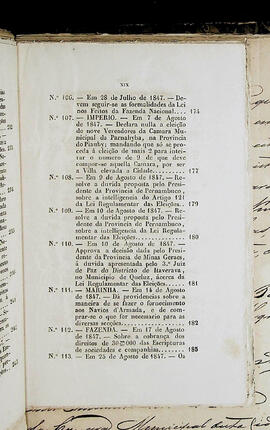 XIX
N.º 106. — Em 28 de Julho de 1847. — De-
vem seguir-se as formalidades da Lei
nos Feitos da Fazenda Nacional.... 174
N.º 107. — IMPERIO. — Em 7 de Agosto
de 1847. — Declara nulla a eleição
de nove Vereadores da Camara Muni-
cipal da Parnahyba, na Provincia
do Piauhy; mandando que só se pro-
ceda á eleição de mais 2 para intei-
rar o numero de 9 de que deve
compor-se aquella Camara, por ser
a Villa elevada a Cidade........... 177
N.º 108. — Em 9 de Agosto de 1847. — Re-
solve a duvida proposta pelo Presi-
dente da Provincia de Pernambuco,
sobre a intelligencia do Artigo 121
da Lei Regulamentar das Eleições.. 179
N.º 109. — Em 10 de Agosto de 1847. — Re-
solve a duvida proposta pelo Presi-
dente da Provincia de Pernambuco,
sobre a intelligencia da Lei Regula-
mentar das Eleições............... 180
N.º 110. — Em 10 de Agosto de 1847. —
Approva a decisão dada pelo Presi-
dente da Provincia de Minas Geraes,
á duvida apresentada pelo 3.º Juiz
de Paz do Districto de Itaverava,
no Municipio de Queluz, ácerca da
Lei Regulamentar das Eleições..... 181
N.º 111. — MARINHA. — Em 14 de Agosto
de 1847. — Dá providencias sobre a
maneira de se fazer o fornecimento
aos Navios d'Armada, e de com-
prar-se o que for necessario para as
diversas secções................. 182
N.º 112. — FAZENDA. — Em 17 de Agosto
de 1847. — Sobre a cobrança dos
direitos de 30$000 das Escripturas
de sociedades e companhias........ 185
N.º 113. — Em 25 de Agosto de 1847. — Os